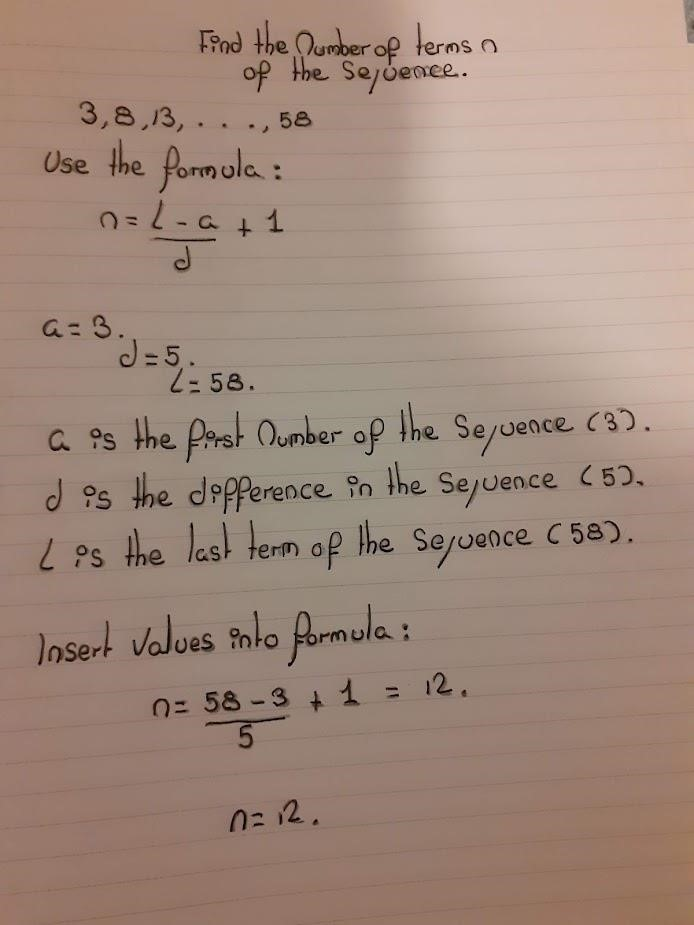 Find the Number of terms n
of the Sequence.
3, 8, 13, . . . ., 58
Use the formula:
n = L - a + 1
d
a = 3.
d = 5.
L = 58.
a is the first Number of the Sequence (3).
d is the difference in the Sequence (5).
L is the last term of the Sequence (58).
Insert Values into formula:
n = 58 - 3 + 1 = 12.
5
n = 12.